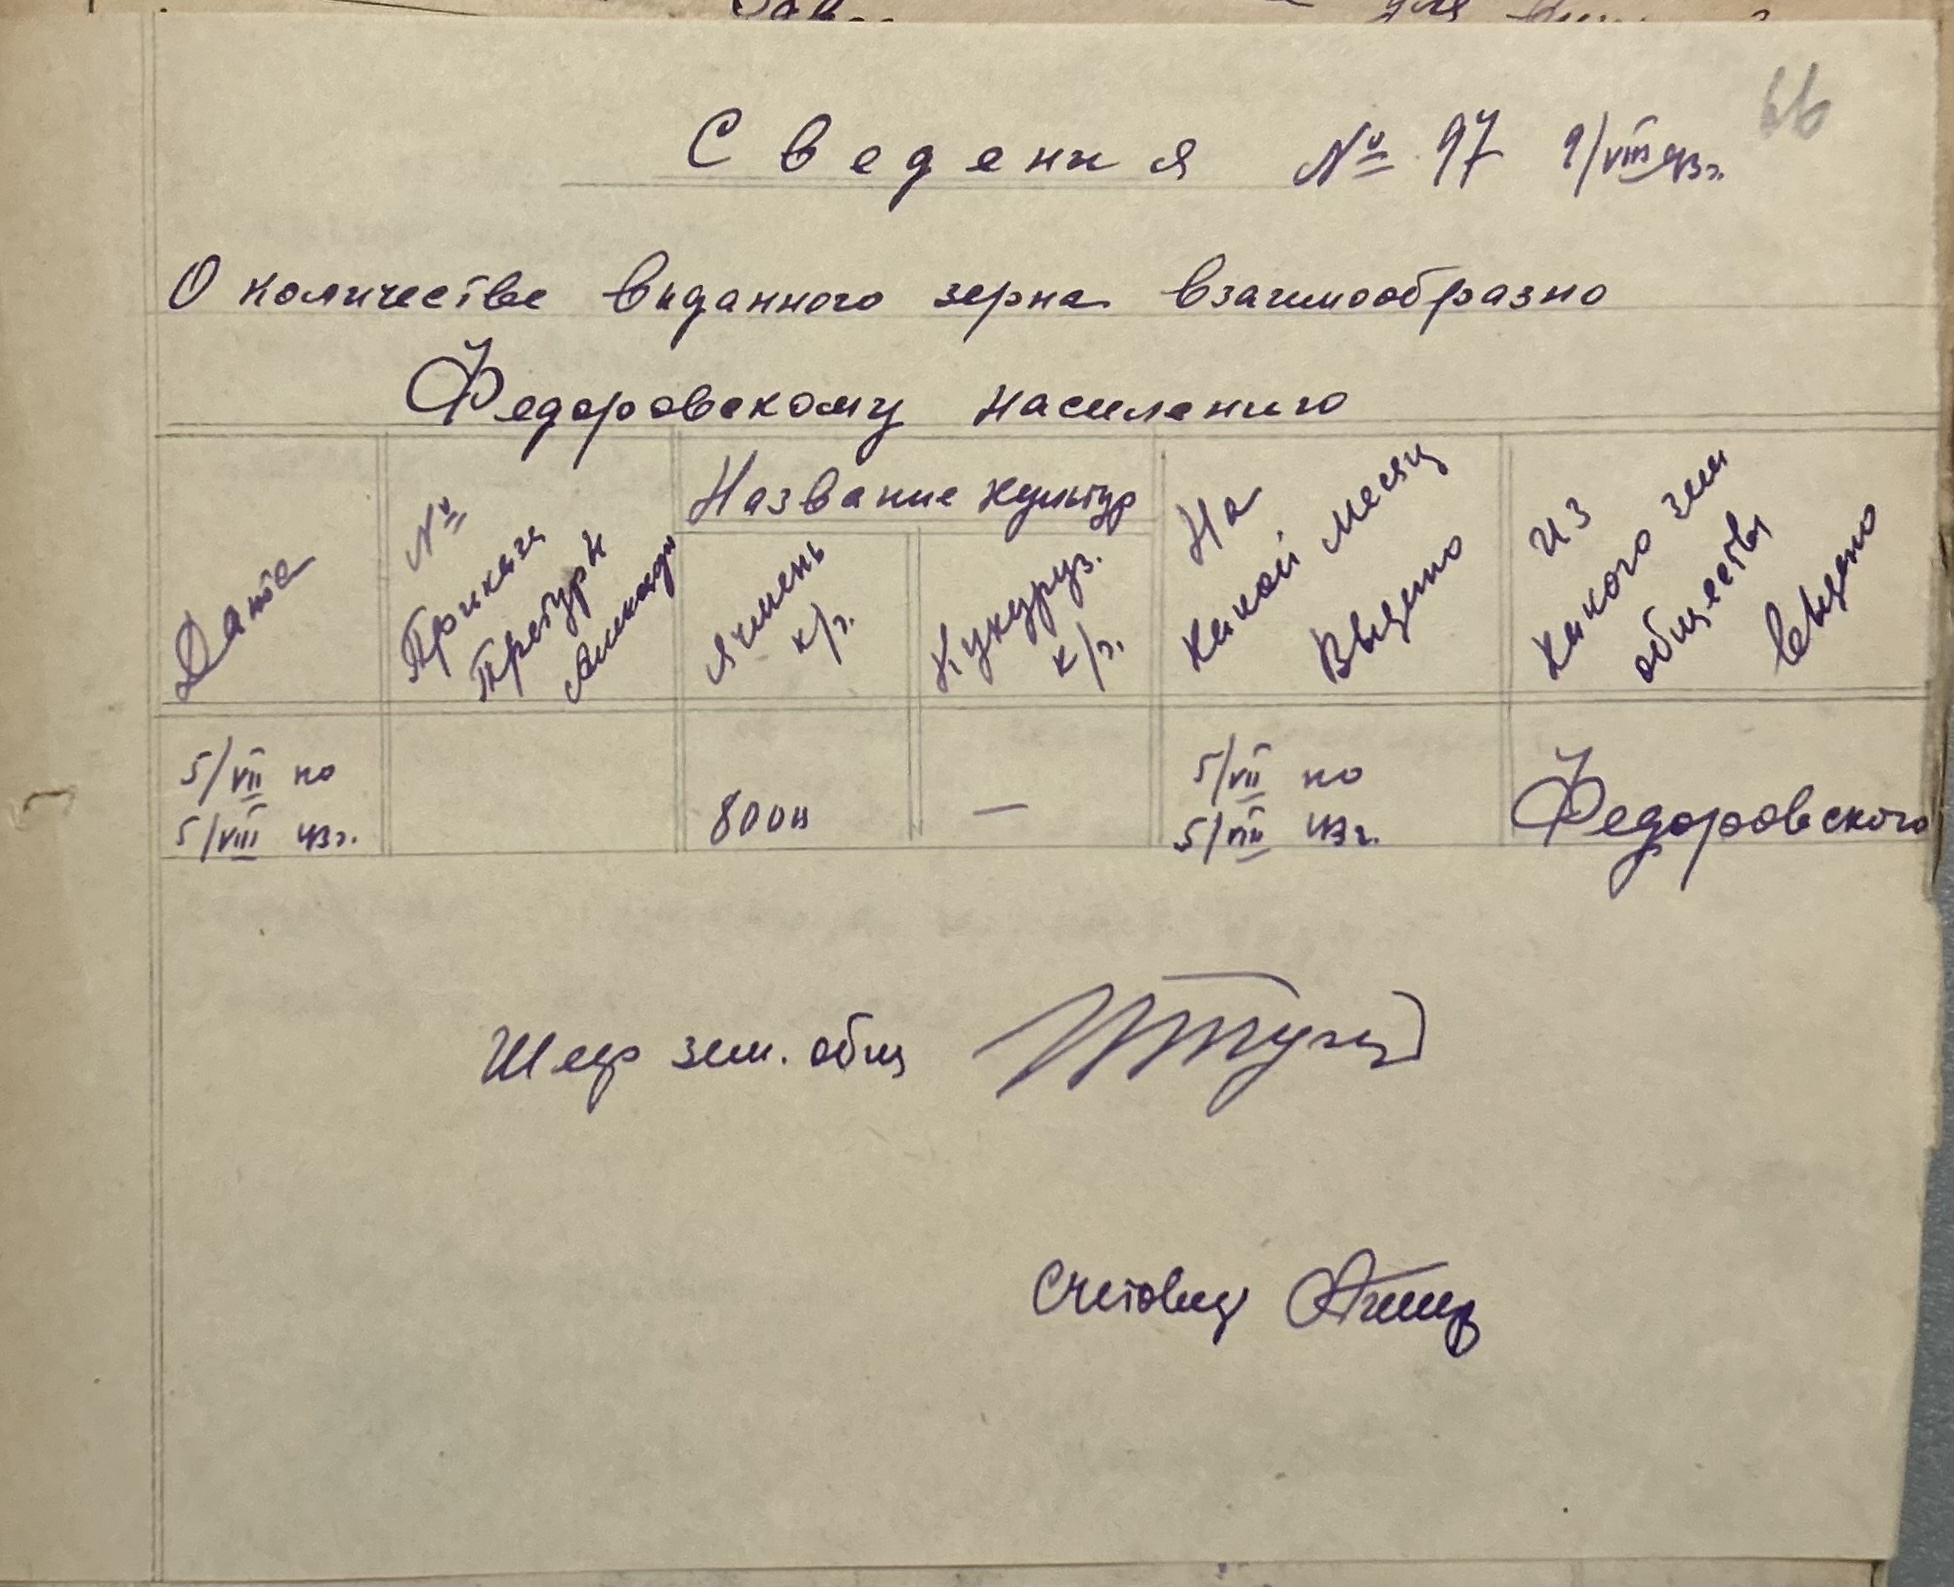 66
Сведения № 97 9/VIII 43 г.
О количестве виданного зерна взаимообразно
Федоровскому населению
Дата
№
Приказа
Претуры
Название культур
Ячмень
к/г.
Кукуруз.
к/г.
На
какой месяц
Выдано
из
какого зем
общества
выдано
5/VII по
5/VIII 43 г.
800
—
5/VII по
5/VIII 43 г.
Федоровского
Шеф зем. общ
Счетовод